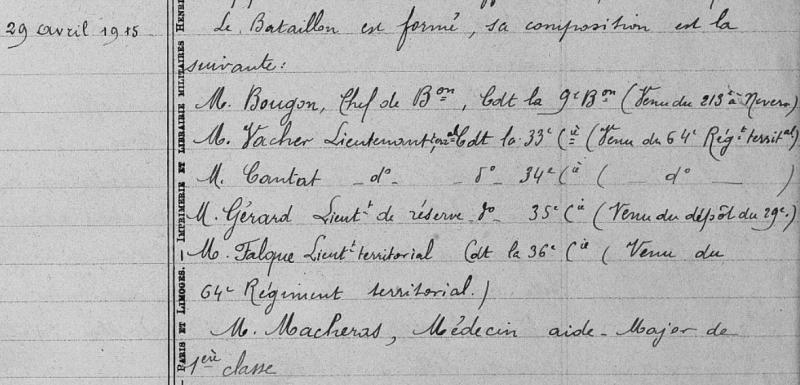 29 avril 1915
Le Bataillon est formé, sa composition est la
suivante:
M. Bougon, Chef de Bon, Cdt la 9e Bon (Venu du 213e à Nevers)
M. Vacher Lieutenant terral Cdt la 33e Cie (Venu du 64e Régt territal)
M. Cantat - do - do - 34e Cie ( - do - )
M. Gérard Lieutt de réserve do 35e Cie (Venu du dépôt du 29e.)
M. Falque Lieutt territorial Cdt la 36e Cie ( Venu du
64e Régiment territorial.)
M. Macheras, Médecin aide-Major de
1ère classe
- PARIS ET LIMOGES. - IMPRIMERIE ET LIBRAIRIE MILITAIRES HENRI